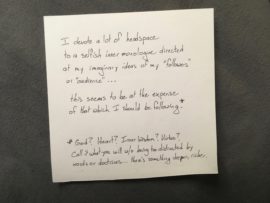 I devote a lot of headspace
to a selfish inner monologue directed
at my imaginary ideas of my "followers"
or "audience"...
this seems to be at the expense
of that which I should be following.*
* Gourd? Heart? Inner Wisdom? Virtue?
Call it what you will w/o being too distracted by
words or doctrines... there's something deeper, wider.